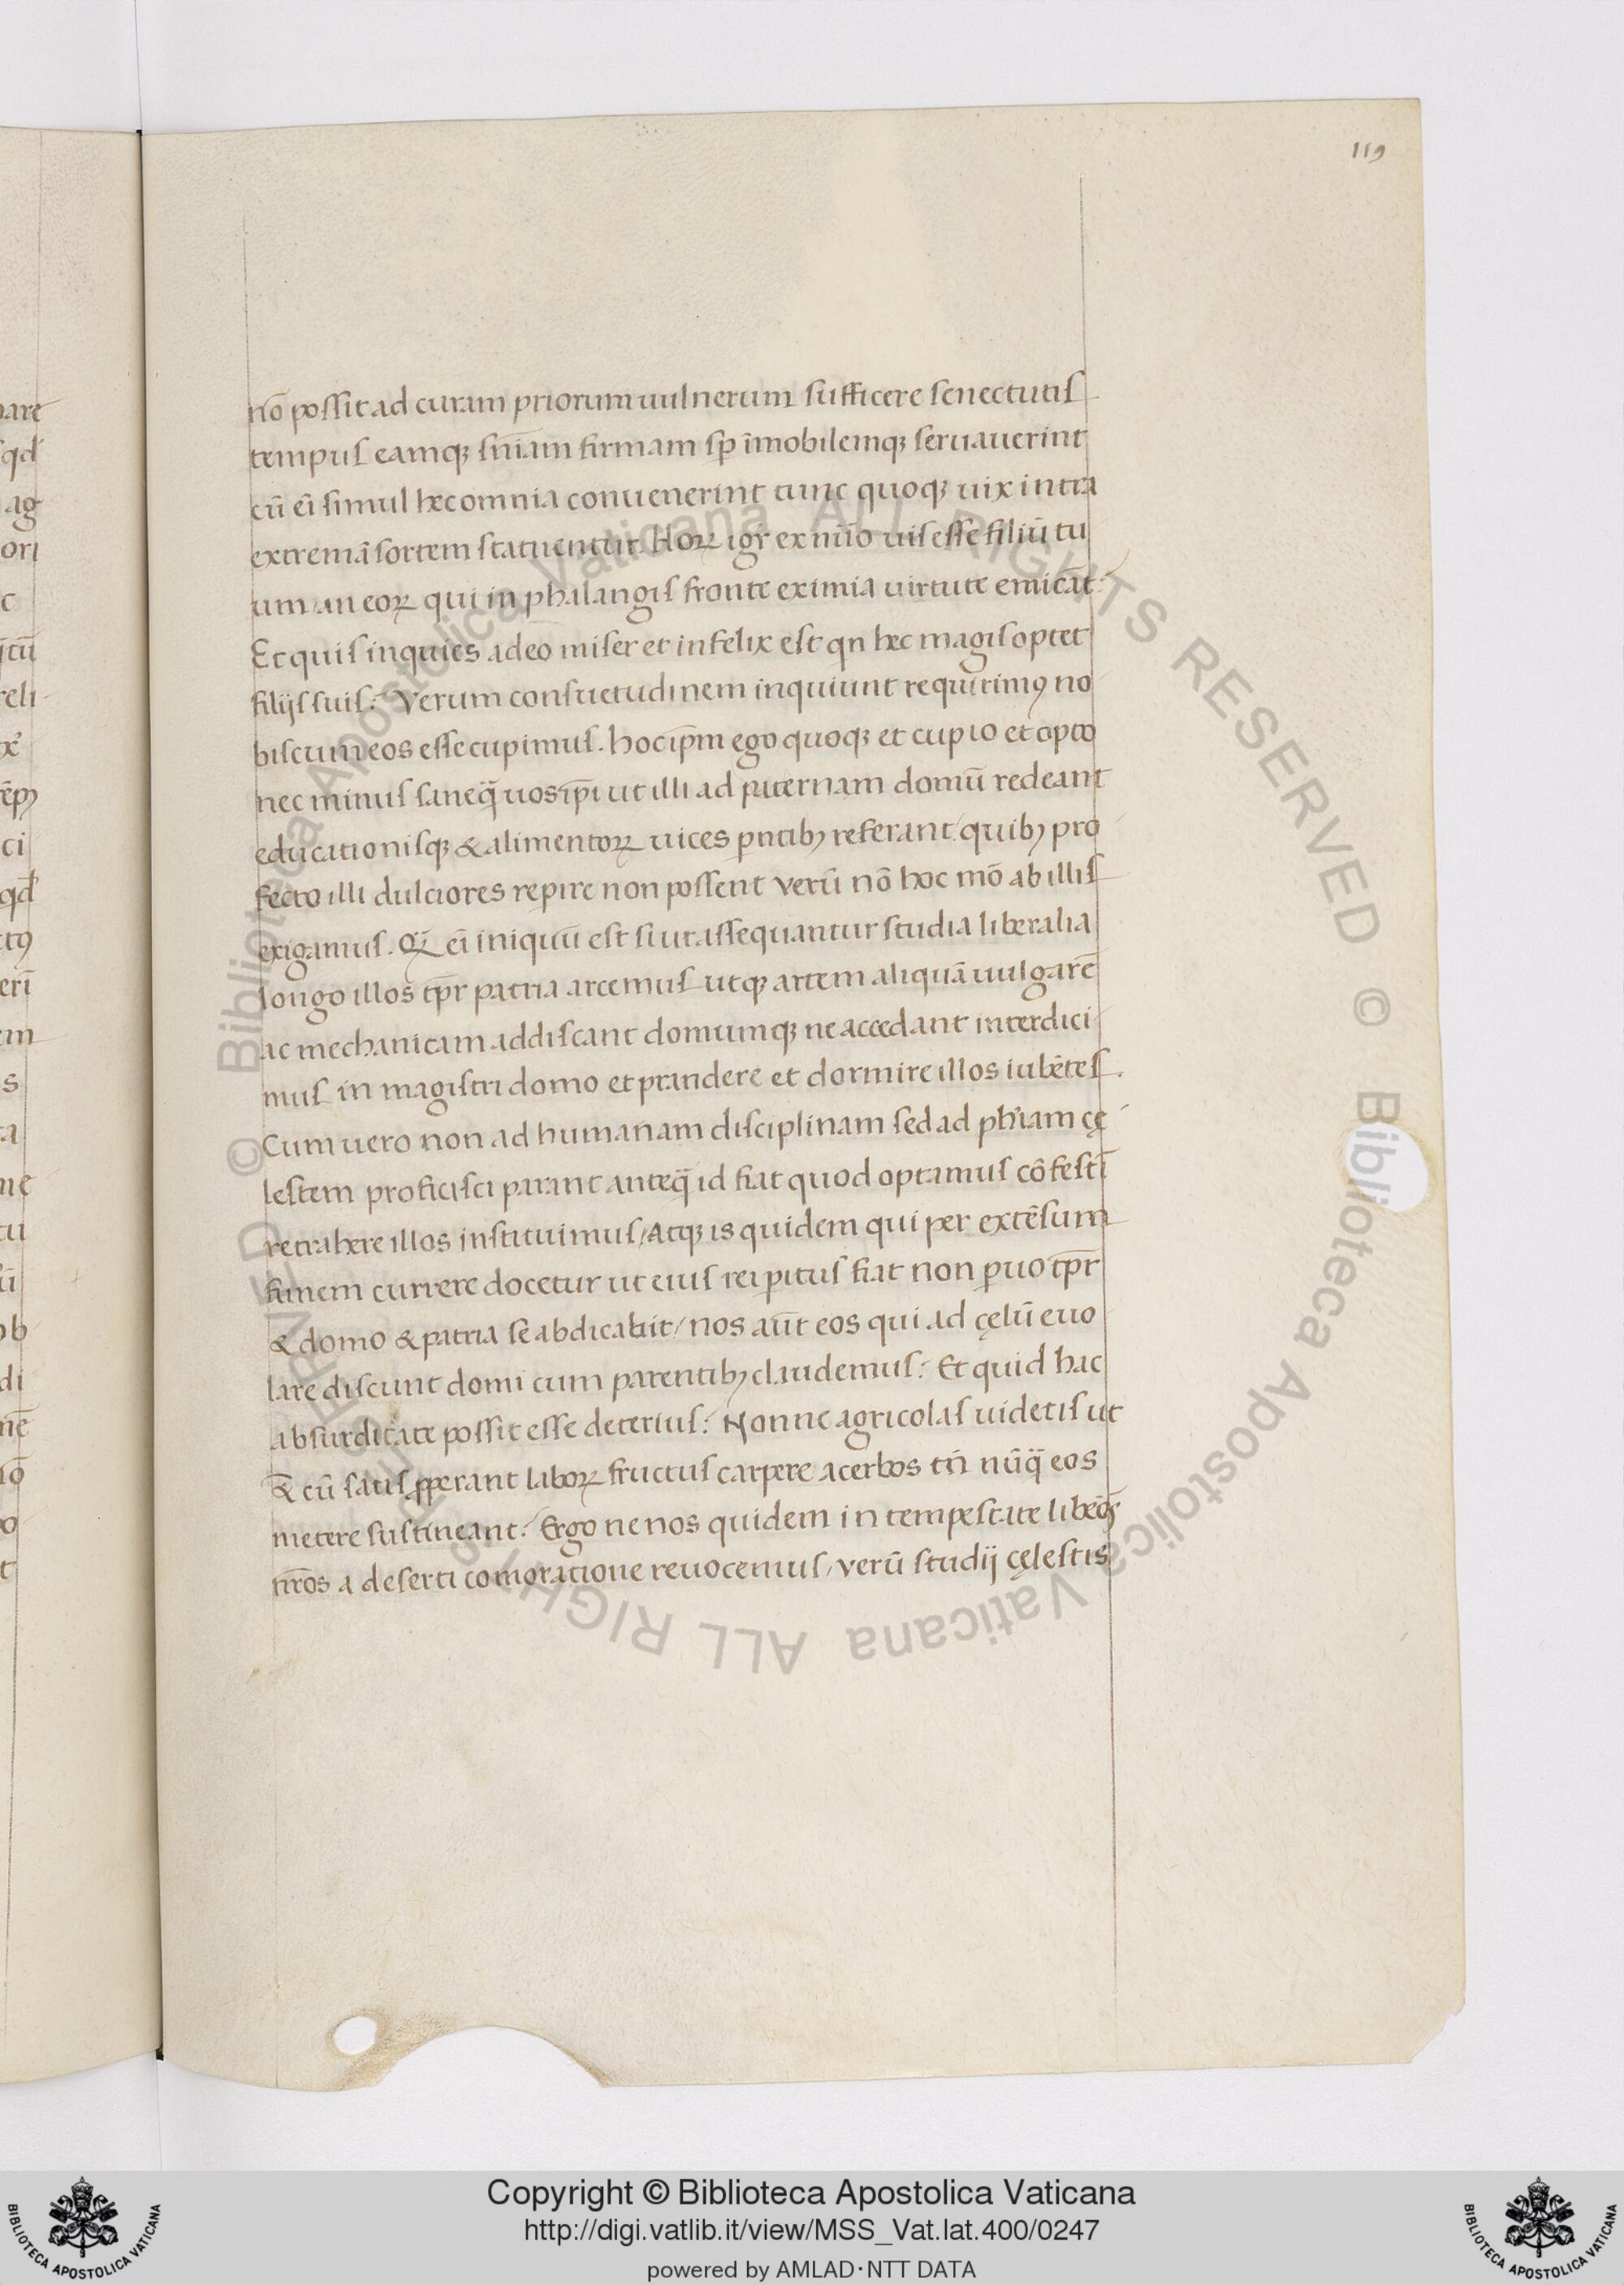 119
nō possit ad curam priorum uulnerum sufficere senectutis
tempus eamqꝫ sn̄iam firmam sp̄ īmobilemqꝫ seruauerint
cū ei simul hec omnia conuenerint tunc quoqꝫ uix intra
extremā sortem statuentur. Hoꝝ igr̄ ex nūo uis esse filiū tu
um an eoꝝ qui in phalangis fronte eximia virtute emicāt
Et quis inquies adeo miser et infelix est qn̄ hec magis optet
filijs suis? Verum consuetudinem inquiunt requirimꝰ no
biscum eos esse cupimus. hoc ip̄m ego quoqꝫ et cupio et opto
nec minus sane qᷓ uos ip̄i ut illi ad paternam domū redeant
educationisqꝫ & alimentoꝝ uices pn̄tibꝫ referant quibꝫ pro
fecto illi dulciores reꝑire non possent verū nō hoc mō ab illis
exigamus. Qᷓ ei iniquū est si ut assequantur studia liberalia
longo illos tp̄r patria arcemus utqꝫ artem aliquā uulgarē
ac mechanicam addiscant domumqꝫ ne accedant interdici
mus in magistri domo et prandere et dormire illos iubētes.
Cum uero non ad humanam disciplinam sed ad ph̄iam cę
lestem proficisci parant anteqᷓ id fiat quod optamus cōfestī
retrahere illos instituimus, atqꝫ is quidem qui per extēsum
funem currere docetur ut eius rei ꝑitus fiat non ꝑuo tp̄r
& domo & patria se abdicabit, nos aūt eos qui ad cęlū euo
lare discunt domi cum parentibꝫ claudemus? Et quid hac
absurditate possit esse deterius? Nonne agricolas uidetis ut
& cū satis ꝓperant laboꝝ fructus carpere acerbos tn̄ nūqᷓ eos
metere sustineant? Ergo ne nos quidem in tempestate
nr̄os a deserti comoratione reuocemus, verū studij cęlestis
Copyright © Biblioteca Apostolica Vaticana
http://digi.vatlib.it/view/MSS_Vat.lat.400/0247
powered by AMLAD·NTT DATA